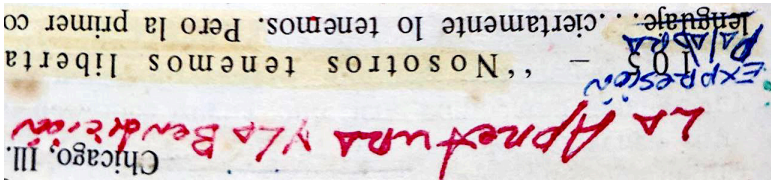 Chicago, Ill.
LA Apretura Y LA Bendición
EXPRESIÓN
– “Nosotros tenemos liberta
PALABRA
lenguaje. . .ciertamente lo tenemos. Pero la primer co